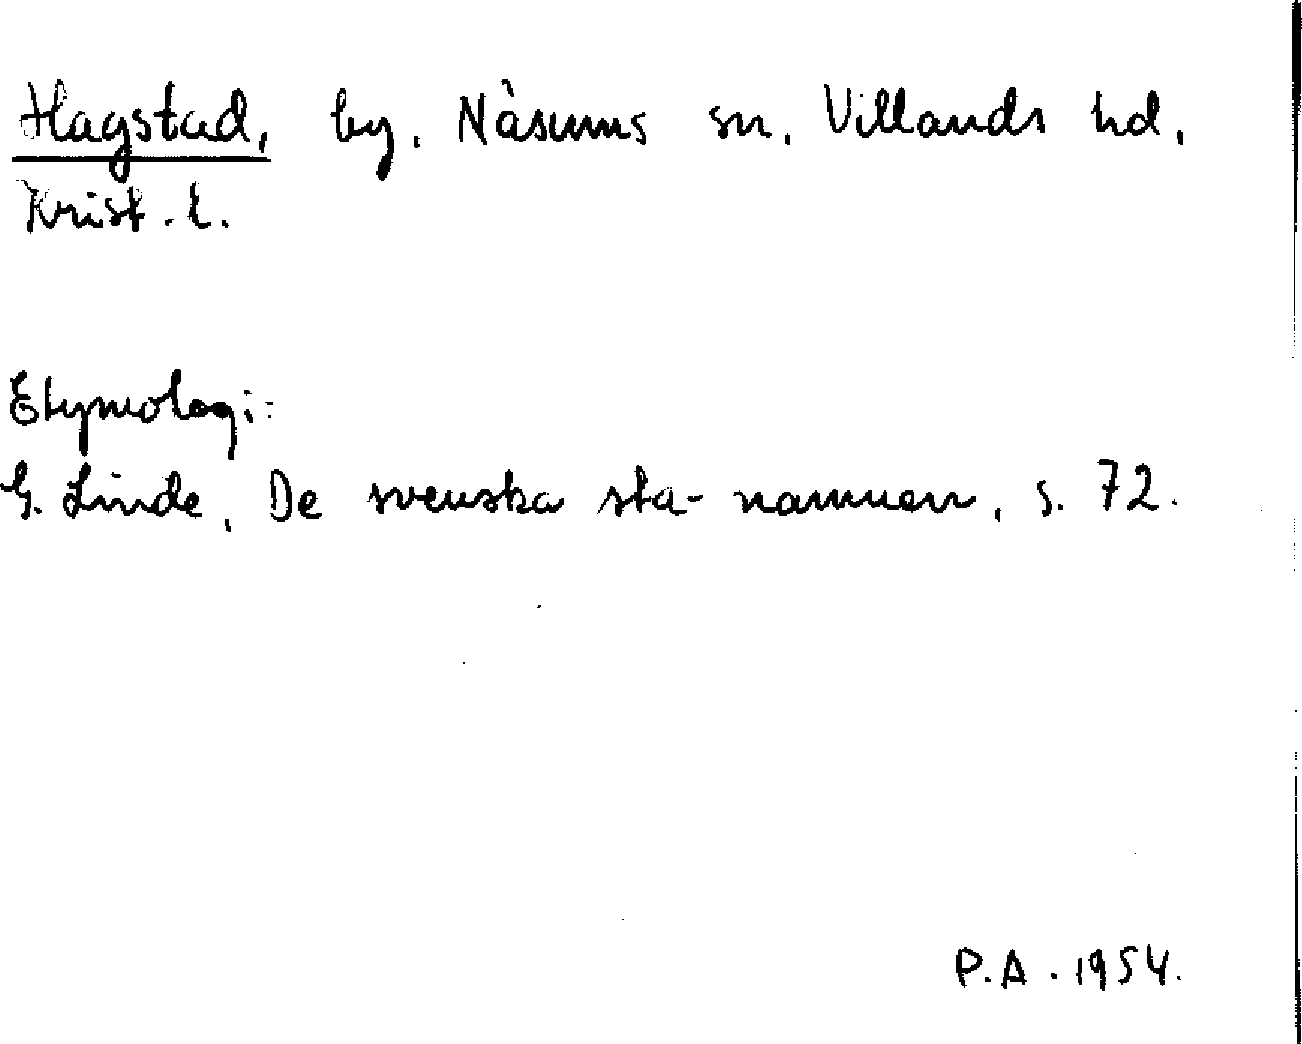 Hagstad, by. Näsums sn. Villands hd.
Krist. l.
Etymologi:
G. Linde, De svenska sta-namnen, s. 72.
P.A. 1954.